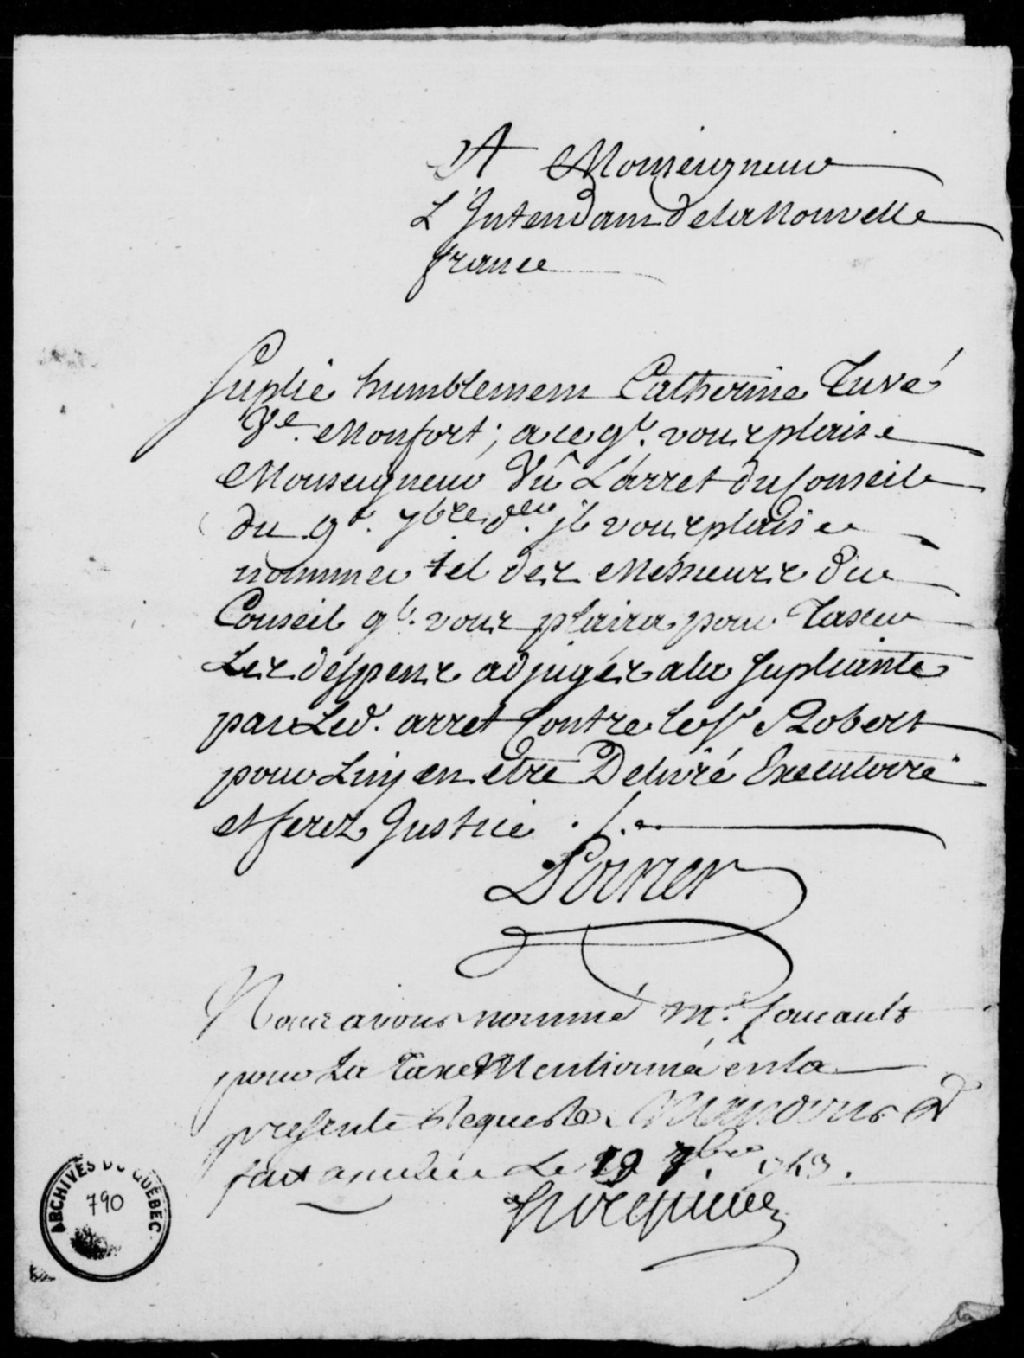 A Monseigneur
L'Intendant de la Nouvelle
france
Suplie humblement Catherine Juvé
Ve. Monfort; a ce qt. vous plaise
Monseigneur Vû L'arret du Conseil
du 9e. 7bre der. il vous plaise
nommer tel des Messieurs du
Conseil ql. vous plaira pour Taxer
Les despens adjugés a la Supliante
par Led. arret Contre le Sr. Robert
pour Luy en etre Delivré Executoire
et ferez Justice ./.
Poirier
Nous avons nommé Mr. foucault
pour La taxe Mentionnée en la
presente Requeste
fait a quebec Le 19 7bre. 743.
hocquart
ARCHIVES DU QUÉBEC
790